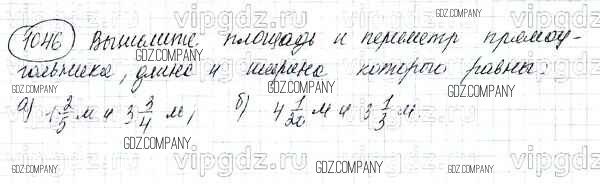 1046 Вычислите площадь и периметр прямоу-
гольника, длина и ширина которого равны:
а) 1 2/5 м и 3 3/4 м, б) 4 1/20 м и 3 1/3 м.
vipgdz.ru
GDZ.COMPANY